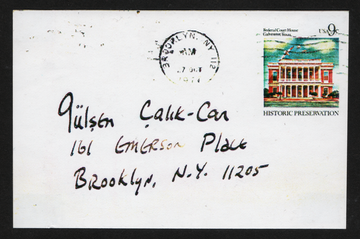 BROOKLYN, NY 112
PM
27 OCT
Federal Court House
Galveston, Texas
USA 9c
HISTORIC PRESERVATION
Gülşen Çalık-Can
161 EMERSON PLACE
BROOKLYN, N.Y. 11205